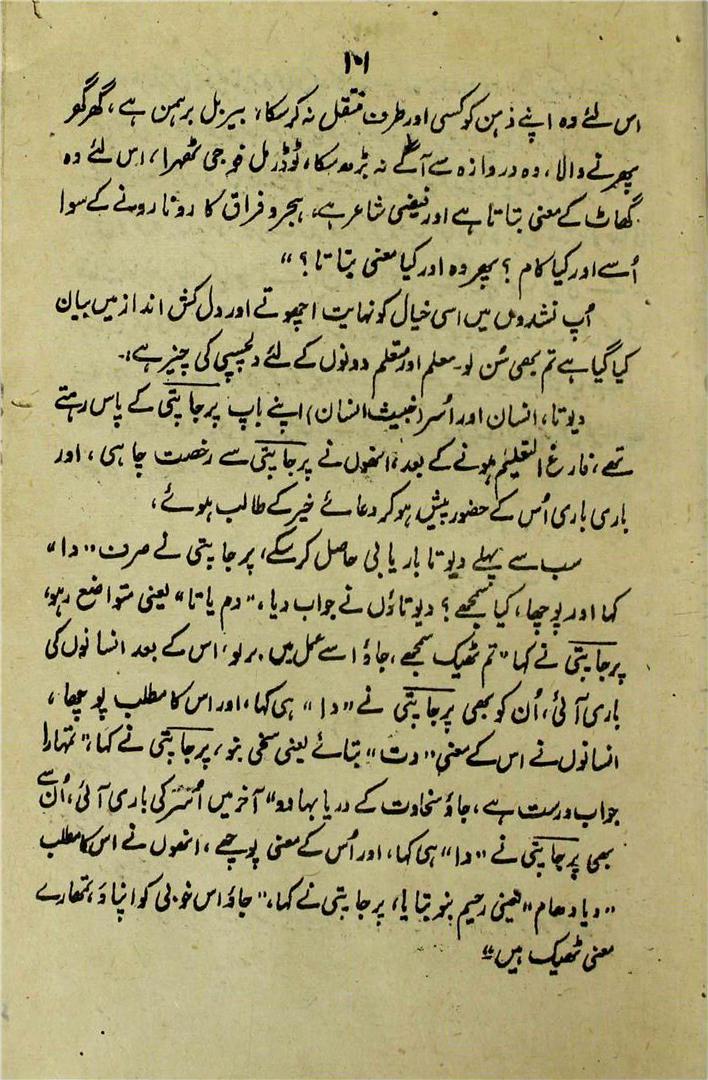 ۱۰۱
اس لئے وہ اپنے ذہن کو کسی اور طرف منتقل نہ کرسکا، بیربل برہمن ہے، گھر گھو
پھرنے والا، وہ دروازہ سے آگے نہ بڑھ سکا، ٹوڈرمل فوجی ٹھہرا، اس لئے وہ
گھاٹ کے معنی بتاتا ہے اور فیضی شاعر ہے، ہجر و فراق کا رونا رونے کے سوا
اُسے اور کیا کام ؟ پھر وہ اور کیا معنی بتاتا ؟ “
اُپ نشدوں میں اسی خیال کو نہایت اچھوتے اور دل کش انداز میں بیان
کیا گیا ہے تم بھی سُن لو۔ معلم اور متعلم دونوں کے لئے دلچسپی کی چیز ہے:۔
دیوتا، انسان اور اُسر (خبیث انسان) اپنے باپ پرجاپتی کے پاس رہتے
تھے، فارغ التعلیم ہونے کے بعد، انھوں نے پرجاپتی سے رخصت چاہی، اور
باری باری اُس کے حضور پیش ہو کر دعائے خیر کے طالب ہوئے،
سب سے پہلے دیوتا باریابی حاصل کر سکے، پرجاپتی نے صرف ”دا“
کہا اور پوچھا، کیا سمجھے ؟ دیوتاؤں نے جواب دیا، ”دم یاتا“ یعنی متواضع رہو،
پرجاپتی نے کہا ”تم ٹھیک سمجھے، جاؤ اسے عمل میں برلو، اس کے بعد انسانوں کی
باری آئی، اُن کو بھی پرجاپتی نے ”دا“ ہی کہا، اور اس کا مطلب پوچھا،
انسانوں نے اس کے معنی ”دت“ بتائے یعنی سخی بنو، پرجاپتی نے کہا، ”تمہارا
جواب درست ہے، جاؤ سخاوت کے دریا بہا دو“ آخر میں اُسر کی باری آئی، اُن سے
بھی پرجاپتی نے ”دا“ ہی کہا، اور اُس کے معنی پوچھے، انھوں نے اس کا مطلب
”دیا دھام“ یعنی رحیم بنو بتایا، پرجاپتی نے کہا، ”جاؤ اس خوبی کو اپناؤ، تمھارے
معنی ٹھیک ہیں“